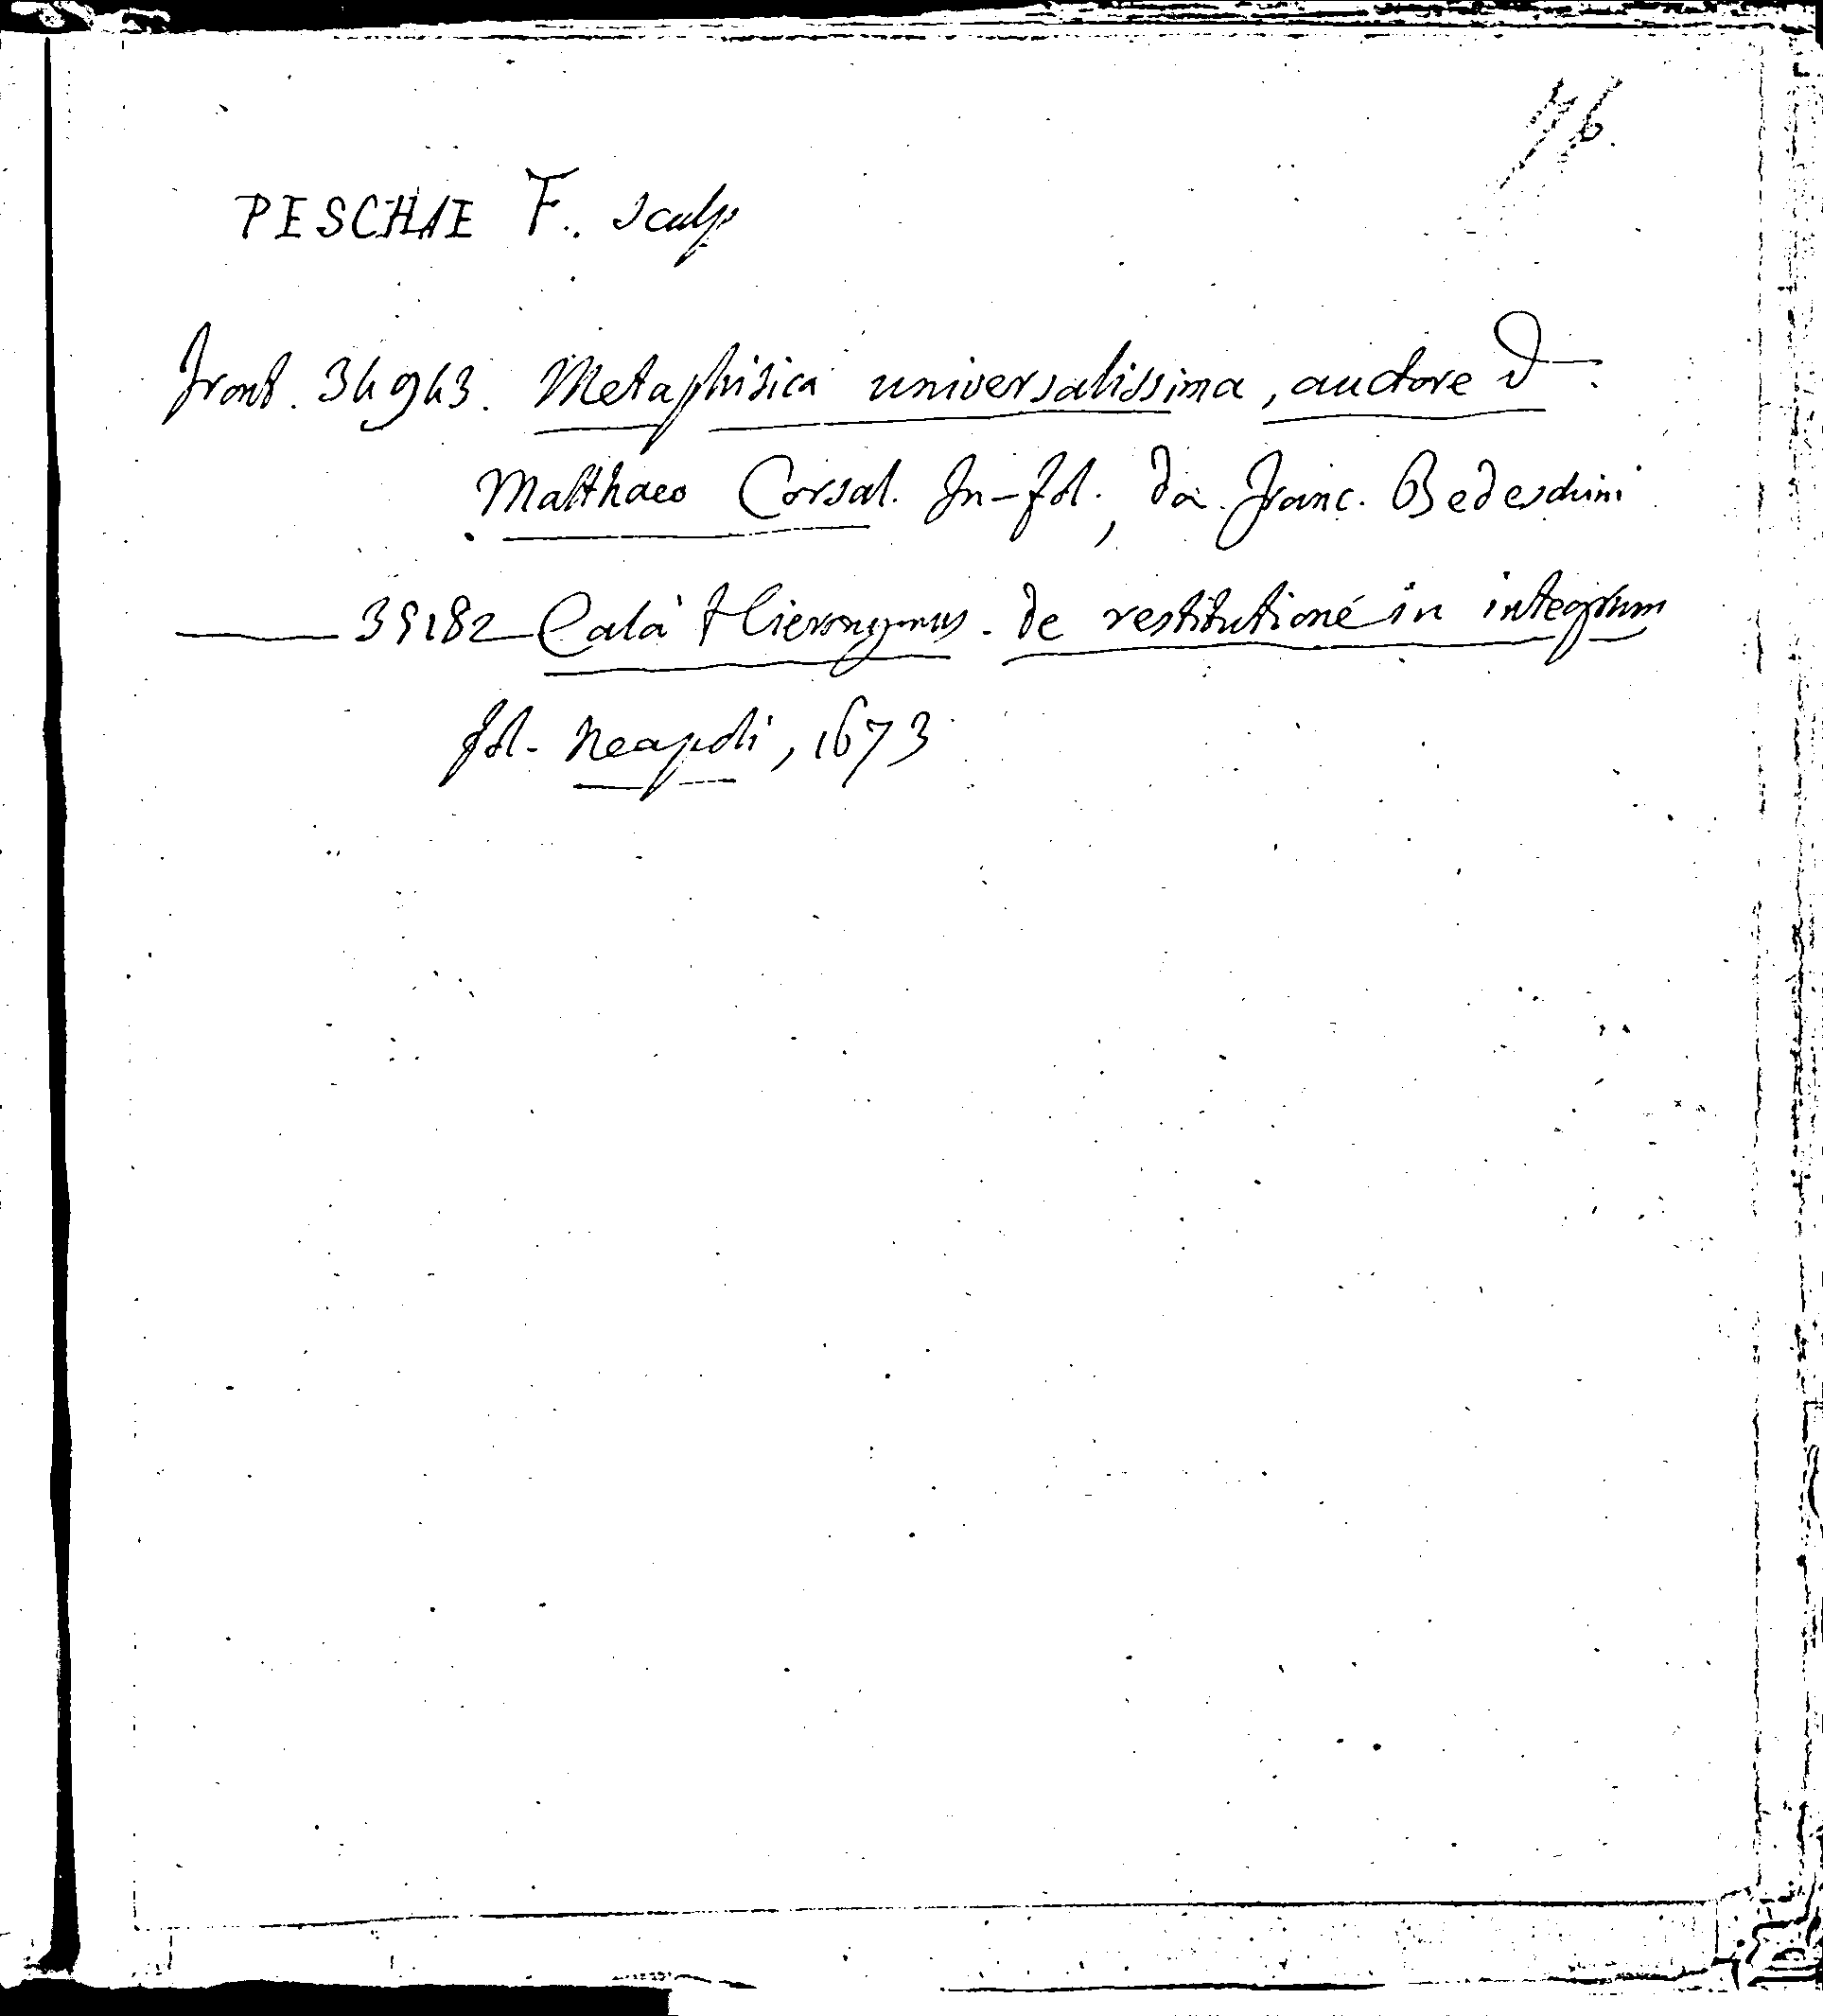 76.
PESCHAE F. sculp
Front. 34943. Metaphisica universalissima, auctore D.
Matthaeo Corsal. In-fol., da Franc. Bedeschini
——— 35182 — Calà Hieronymus. de restitutione in integrum
fol. Neapoli, 1673